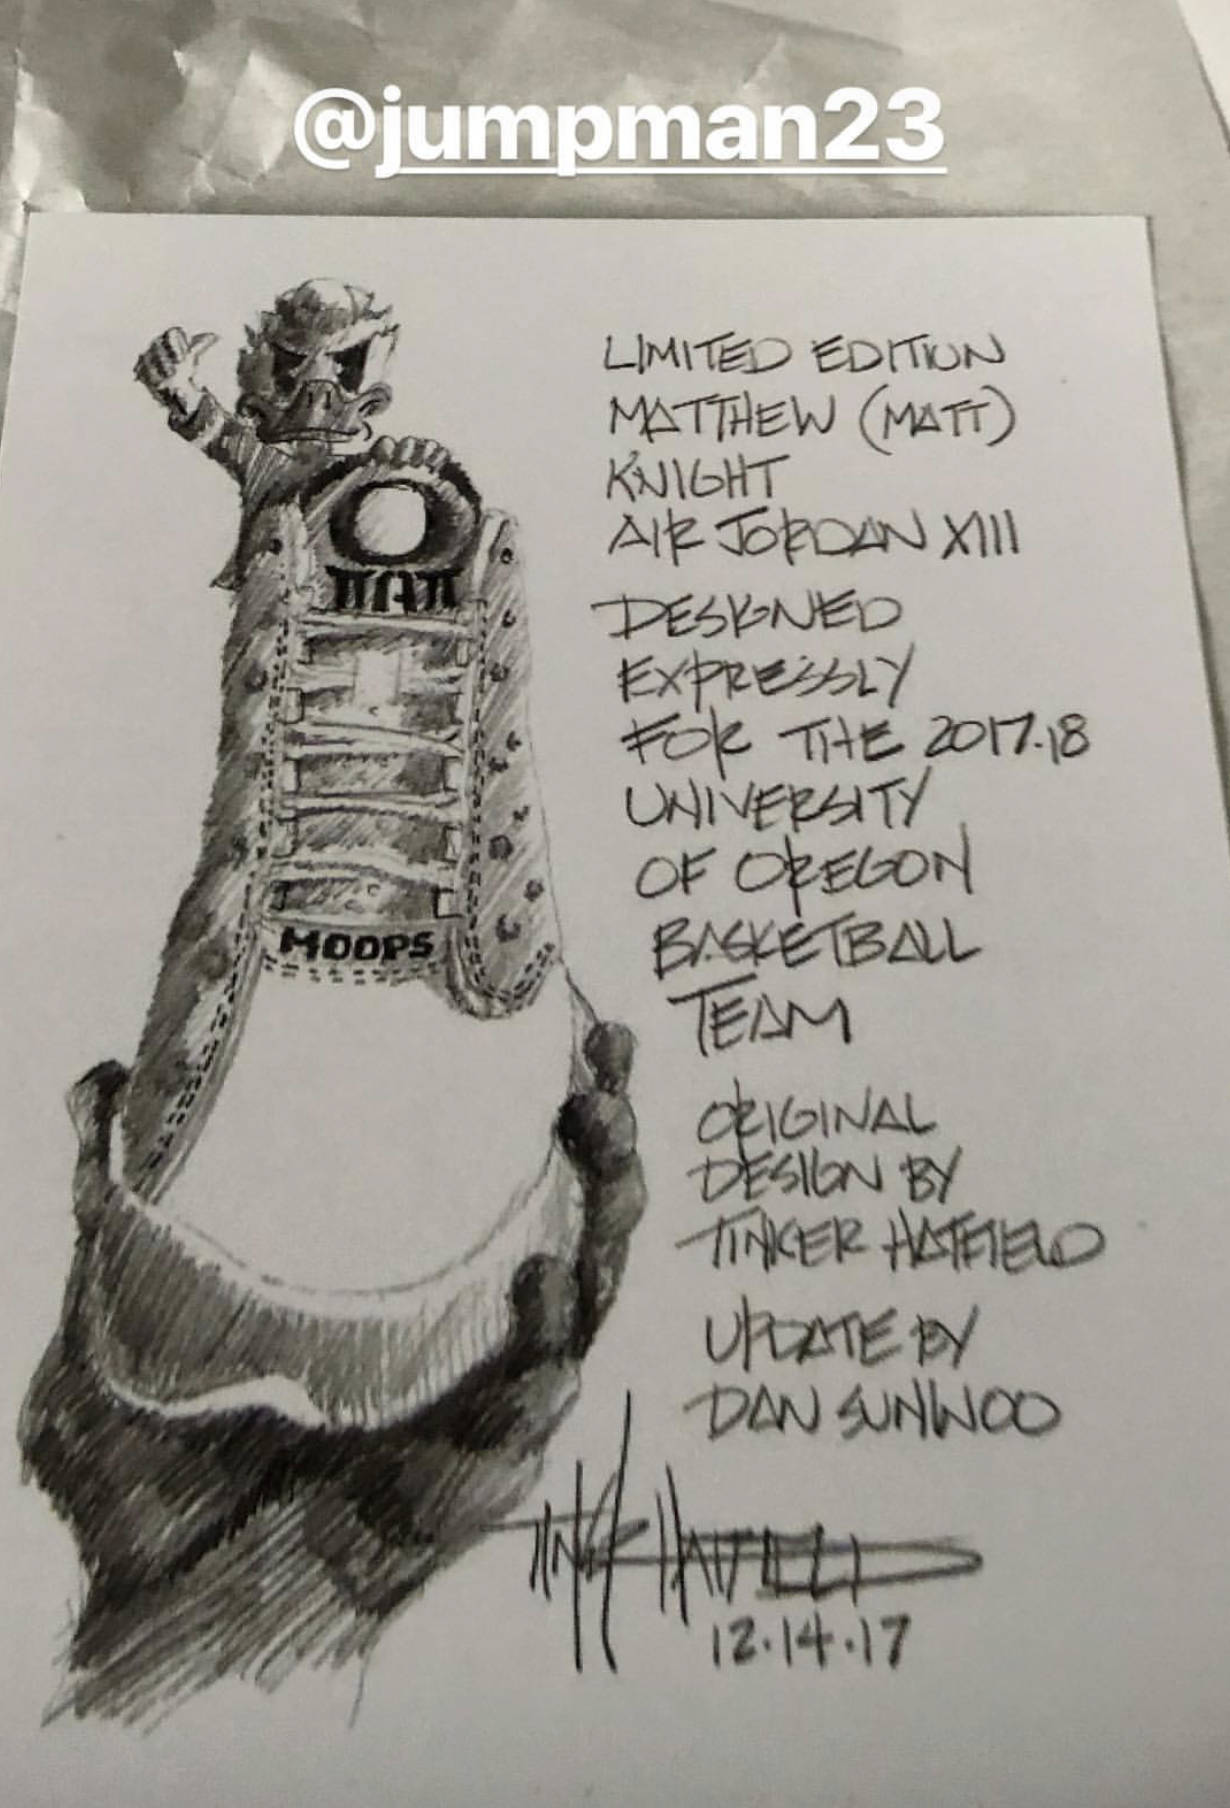 @jumpman23
LIMITED EDITION
MATTHEW (MATT)
KNIGHT
AIR JORDAN XIII
DESIGNED
EXPRESSLY
FOR THE 2017.18
UNIVERSITY
OF OREGON
BASKETBALL
TEAM
ORIGINAL
DESIGN BY
TINKER HATFIELD
UPDATE BY
DAN SUNWOO
TINKER HATFIELD
12.14.17
O
MOOPS